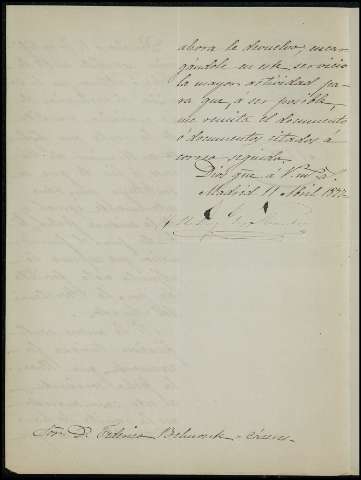 ahora le devuelvo, encar-
gándole en este servicio
la mayor actividad pa-
ra que, á ser posible,
me remita el documento
ó documentos citados á
correo seguido.
Dios gue á V. m. a.
Madrid 11 Abril 1877
Sor. D. Federico Belmonte - Cáceres